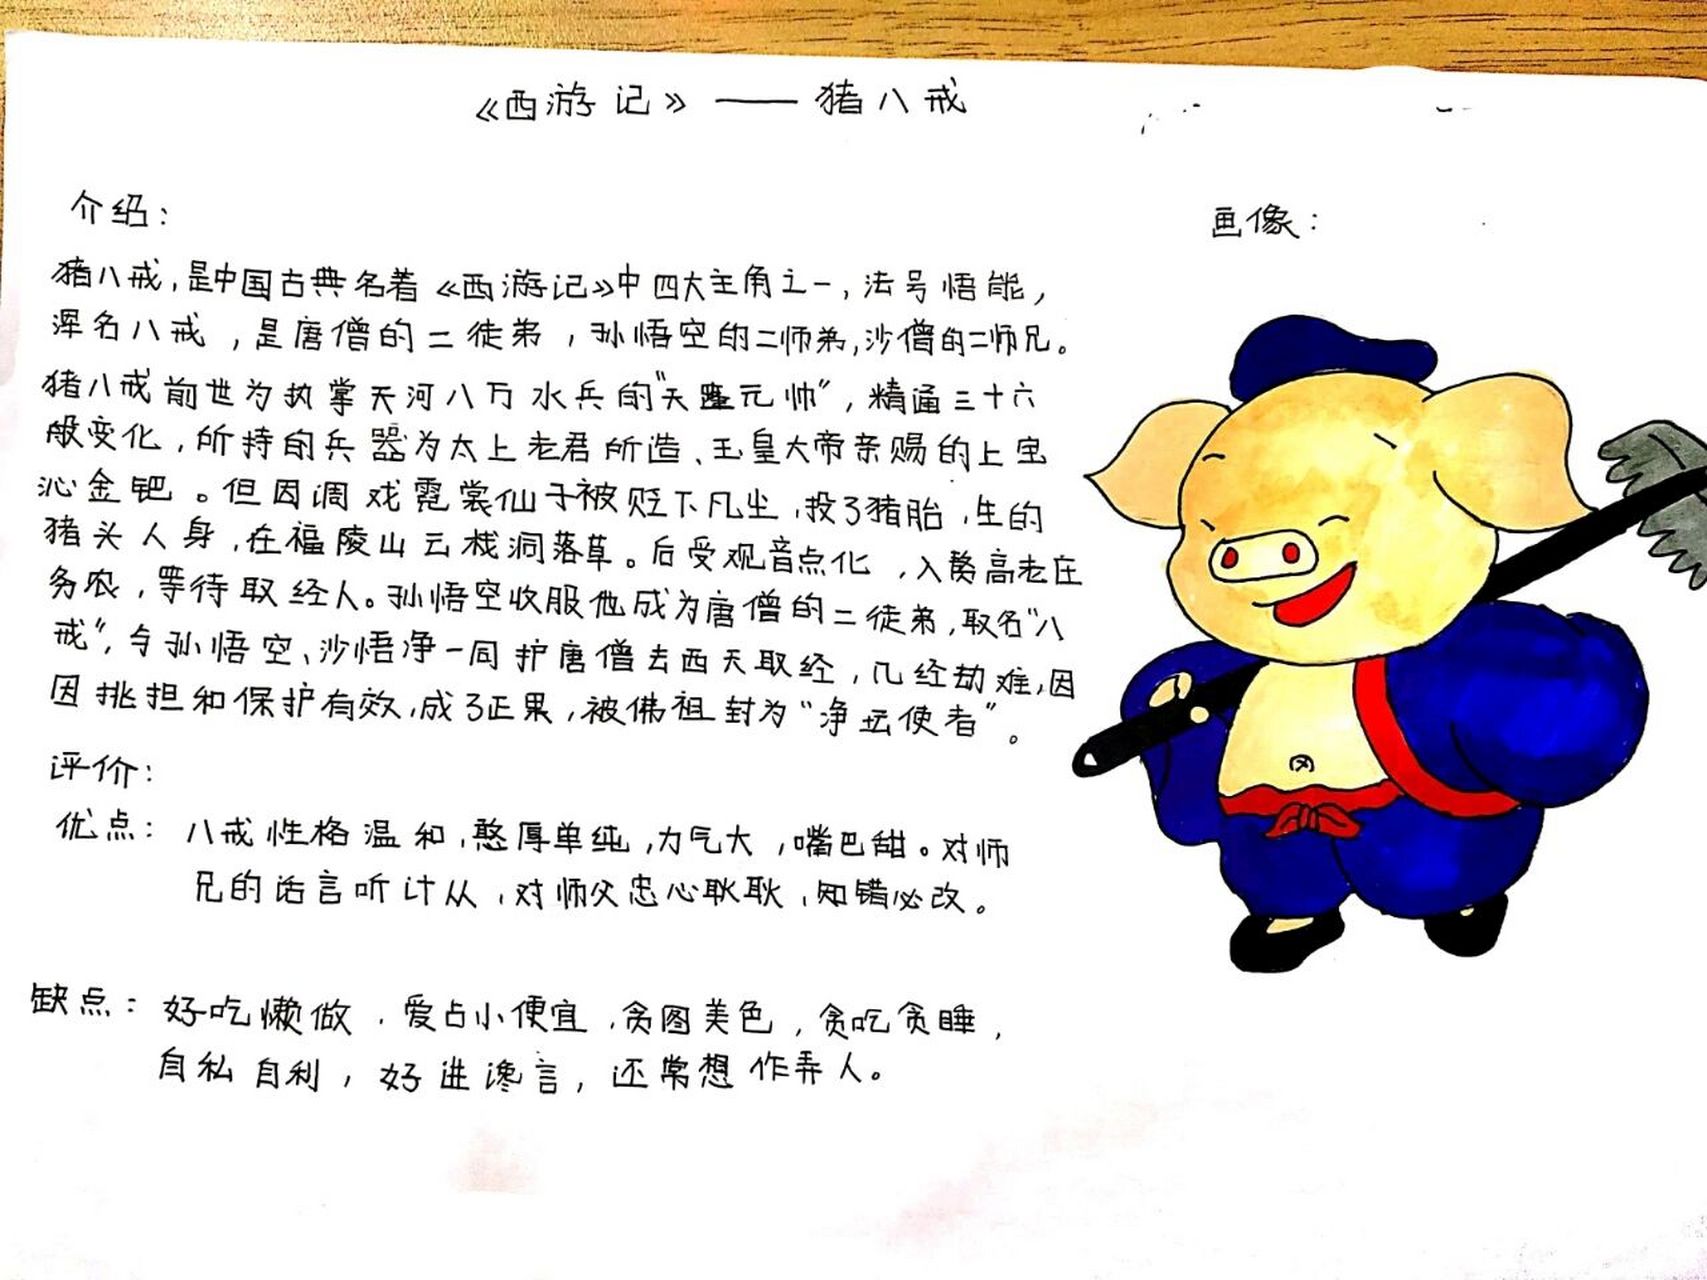 《西游记》——猪八戒
介绍：
画像：
猪八戒，是中国古典名著《西游记》中四大主角之一，法号悟能，
浑名八戒，是唐僧的二徒弟，孙悟空的二师弟，沙僧的二师兄。
猪八戒前世为执掌天河八万水兵的“天蓬元帅”，精通三十六
般变化，所持的兵器为太上老君所造、玉皇大帝亲赐的上宝
沁金钯。但因调戏霓裳仙子被贬下凡尘，投了猪胎，生的
猪头人身，在福陵山云栈洞落草。后受观音点化，入赘高老庄
务农，等待取经人。孙悟空收服他成为唐僧的二徒弟，取名“八
戒”，与孙悟空、沙悟净一同护唐僧去西天取经，几经劫难，因
因挑担和保护有效，成了正果，被佛祖封为“净坛使者”。
评价：
优点：八戒性格温和，憨厚单纯，力气大，嘴巴甜。对师
兄的话言听计从，对师父忠心耿耿，知错必改。
缺点：好吃懒做，爱占小便宜，贪图美色，贪吃贪睡，
自私自利，好进谗言，还常想作弄人。